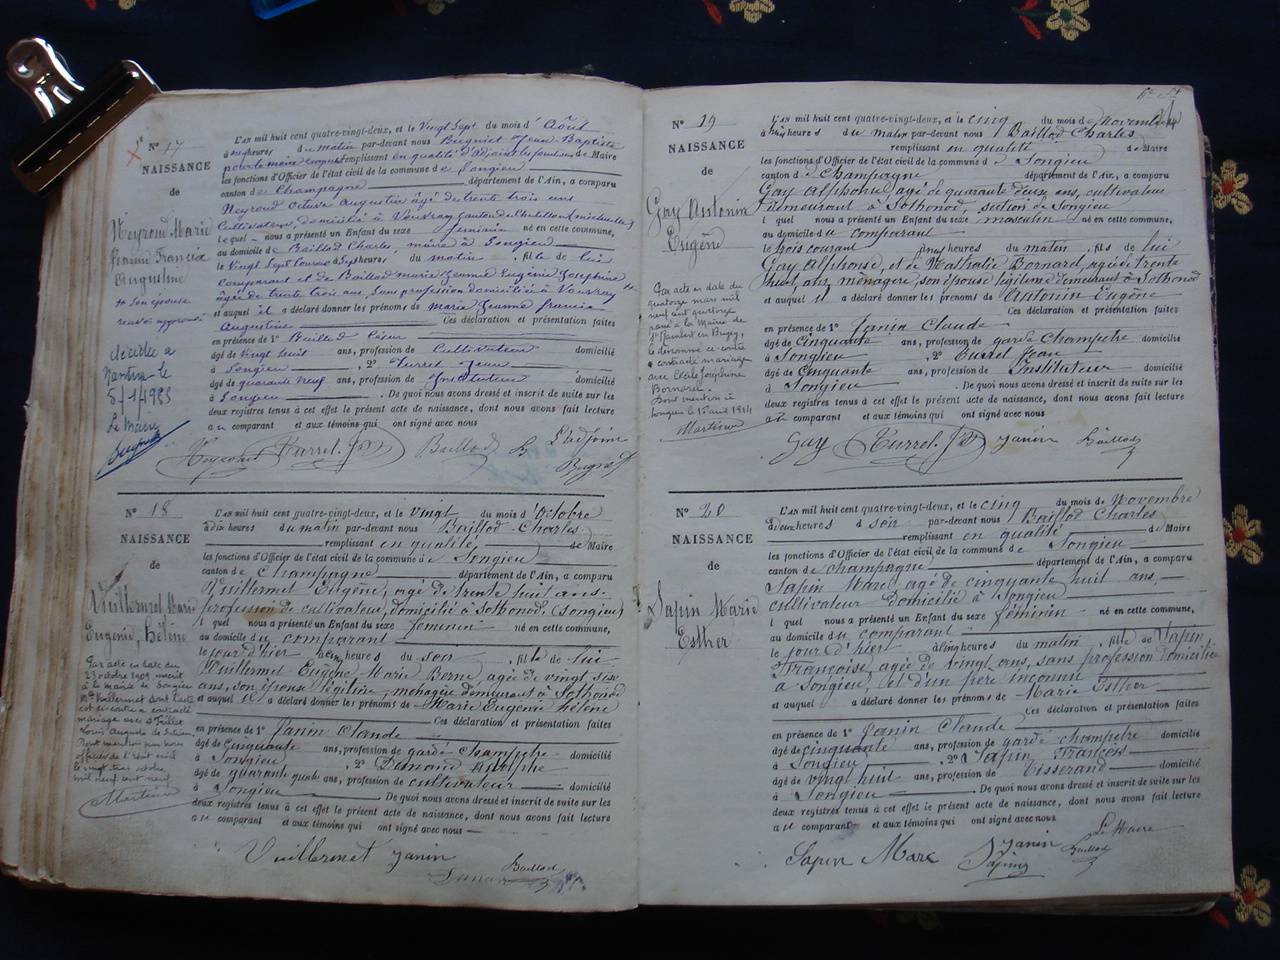 N° 17
NAISSANCE
de
Neyroud Marie
Jeanne Francia
Augustine
+ son épouse
décédée à
Nantua le
8/1/1983
Le Maire
L'AN mil huit cent quatre-vingt-deux, et le Vingt Sept du mois d'Août
à heures du matin par-devant nous Bugniet Jean Baptiste
remplissant en qualité d'adjoint les fonctions de Maire
les fonctions d'Officier de l'état civil de la commune de Songieu
canton de Champagne département de l'Ain, a comparu
Neyroud Octave Augustin âgé de trente trois ans
Cultivateur, domicilié à Vouvray Canton de Chatillon (michaille)
lequel nous a présenté un Enfant du sexe féminin né en cette commune,
au domicile de Baillod Charles, maire à Songieu
le Vingt Sept courant à Sept heures du matin, fille de lui
comparant et de Baillod marie Jeanne Eugénie Joséphine +
âgée de trente trois ans, Sans profession domiciliée à Vouvray
et auquel il a déclaré donner les prénoms de Marie Jeanne francia
Augustine Ces déclaration et présentation faites
en présence de 1° Baillod César
âgé de vingt huit ans, profession de Cultivateur domicilié
à Songieu, 2° Turrel Jean
âgé de quarante neuf ans, profession de Instituteur domicilié
à Songieu. De quoi nous avons dressé et inscrit de suite sur les
deux registres tenus à cet effet le présent acte de naissance, dont nous avons fait lecture
au comparant et aux témoins qui ont signé avec nous
Neyroud Turrel Jn Baillod L'adjoint
Bugniet
N° 18
NAISSANCE
de
Vuillermet Marie
Eugénie, Hélène
Par acte en date du
23 octobre 1909 inscrit
à la mairie de Songieu
Vuillermet dont l'acte
est ci-contre a contracté
mariage avec
Dont mention par nous
officier de l'état civil
le vingt trois octobre
mil neuf cent neuf.
Martin
L'AN mil huit cent quatre-vingt-deux, et le vingt du mois d'Octobre
à dix heures du matin par-devant nous Baillod Charles
remplissant en qualité de Maire
les fonctions d'Officier de l'état civil de la commune de Songieu
canton de Champagne département de l'Ain, a comparu
Vuillermet Eugène, âgé de trente huit ans.
profession de cultivateur, domicilié à Sothonod, (Songieu)
lequel nous a présenté un Enfant du sexe féminin né en cette commune,
au domicile du comparant
le jour d'hier à cinq heures du soir, fille de lui
Vuillermet Eugène Marie Berne, âgée de vingt six
ans, son épouse légitime, ménagère demeurant à Sothonod
et auquel il a déclaré donner les prénoms de Marie Eugénie hélène
Ces déclaration et présentation faites
en présence de 1° Janin Claude
âgé de Cinquante ans, profession de garde Champetre domicilié
à Songieu, 2° Dumond Adolphe
âgé de quarante quatre ans, profession de cultivateur domicilié
à Songieu De quoi nous avons dressé et inscrit de suite sur les
deux registres tenus à cet effet le présent acte de naissance, dont nous avons fait lecture
au comparant et aux témoins qui ont signé avec nous
Vuillermet Janin Baillod
N° 19
NAISSANCE
de
Gay Antonin
Eugène
Par acte en date du
quatorze mars mil
neuf cent quatorze
passé à la Mairie de
St Rambert en Bugey,
le dénommé ci-contre
a contracté mariage
avec Joséphine
Bornarel.
Dont mention à
Songieu le 15 avril 1914
Martin
L'AN mil huit cent quatre-vingt-deux, et le cinq du mois de Novembre
à huit heures du matin par-devant nous Baillod Charles
remplissant en qualité de Maire
les fonctions d'Officier de l'état civil de la commune de Songieu
canton de Champagne département de l'Ain, a comparu
Gay Alphonse, âgé de quarante deux ans, cultivateur
demeurant à Sothonod, section de Songieu
lequel nous a présenté un Enfant du sexe masculin né en cette commune,
au domicile du comparant
le trois courant à heures du matin, fils de lui
Gay Alphonse, et de Nathalie Bornard, agée de trente
huit ans, ménagère, son épouse légitime demeurant à Sothonod
et auquel il a déclaré donner les prénoms de Antonin Eugène
Ces déclaration et présentation faites
en présence de 1° Janin Claude
âgé de cinquante ans, profession de garde Champetre domicilié
à Songieu, 2° Turrel Jean
âgé de Cinquante ans, profession de Instituteur domicilié
à Songieu. De quoi nous avons dressé et inscrit de suite sur les
deux registres tenus à cet effet le présent acte de naissance, dont nous avons fait lecture
au comparant et aux témoins qui ont signé avec nous
Gay Turrel Jn Janin Baillod
N° 20
NAISSANCE
de
Sapin Marie
Esther
L'AN mil huit cent quatre-vingt-deux, et le cinq du mois de Novembre
à deux heures d soir par-devant nous Baillod Charles
remplissant en qualité de Maire
les fonctions d'Officier de l'état civil de la commune de Songieu
canton de champagne département de l'Ain, a comparu
Sapin Marc, agé de cinquante huit ans,
cultivateur domicilié à Songieu
lequel nous a présenté un Enfant du sexe féminin né en cette commune,
au domicile du comparant
le jour d'hier à cinq heures du matin, fille de Sapin
Françoise, agée de vingt ans, sans profession domiciliée
à Songieu, et d'un père inconnu
et auquel a déclaré donner les prénoms de Marie Esther
Ces déclaration et présentation faites
en présence de 1° Janin Claude
âgé de cinquante ans, profession de garde champetre domicilié
à Songieu, 2° Sapin François
âgé de vingt huit ans, profession de Tisserand domicilié
à Songieu. De quoi nous avons dressé et inscrit de suite sur les
deux registres tenus à cet effet le présent acte de naissance, dont nous avons fait lecture
au comparant et aux témoins qui ont signé avec nous
Sapin Marc Janin Le Maire
Sapin Baillod